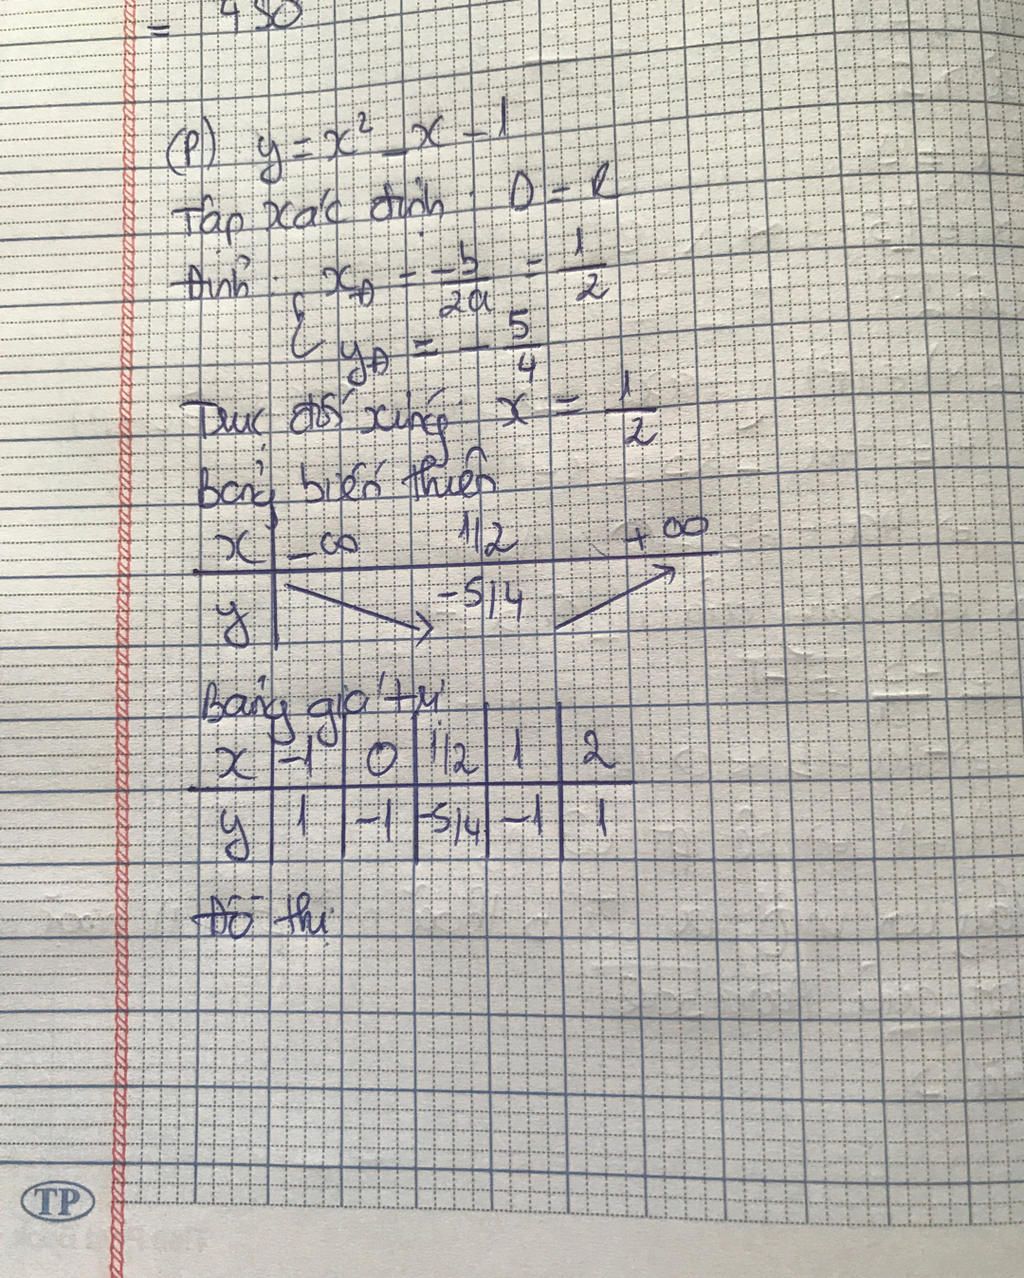 = 430
(P) y = x² - x - 1
Tập xác định : D = R
Đỉnh : { xĐ = -b/2a = 1/2
yĐ = - 5/4
Trục đối xứng x = 1/2
Bảng biến thiên
x -∞ 1/2 +∞
y -5/4
Bảng giá trị
x -1 0 1/2 1 2
y 1 -1 -5/4 -1 1
Đồ thị
TP